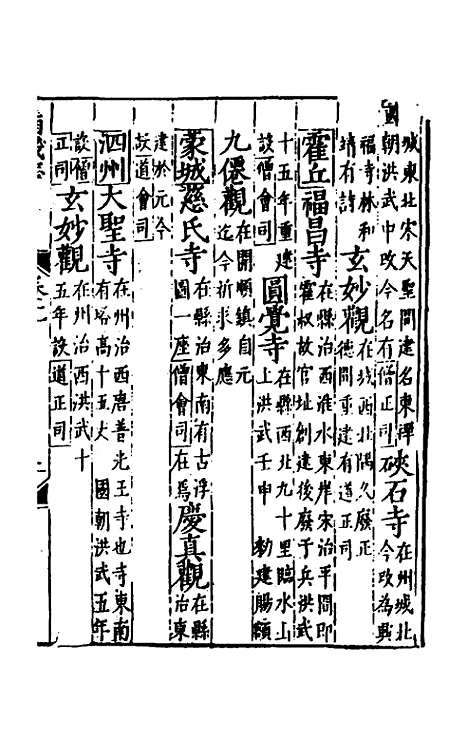 城東北宋天聖間建名東禪
國朝洪武中改今名有僧正司硤石寺在州城北今改為興
福寺林和靖有詩玄妙觀在城西北隅久廢正德間重建有道正司
霍丘福昌寺在縣治西淮水東岸宋治平間即霍叔故官址創建後廢于兵洪武
十五年重建設僧會司圓覺寺在縣西北九十里臨水上上洪武壬申勑建賜額
九僊觀在開順鎮自元迄今祈求多應
蒙城慈氏寺在縣治東南有古浮圖一座僧會司在焉慶真觀在縣治東
建於元今設道會司
泗州大聖寺在州治西唐善光王寺也寺東南有塔高十五丈國朝洪武五年
設僧正司玄妙觀在州治西洪武十五年設道正司